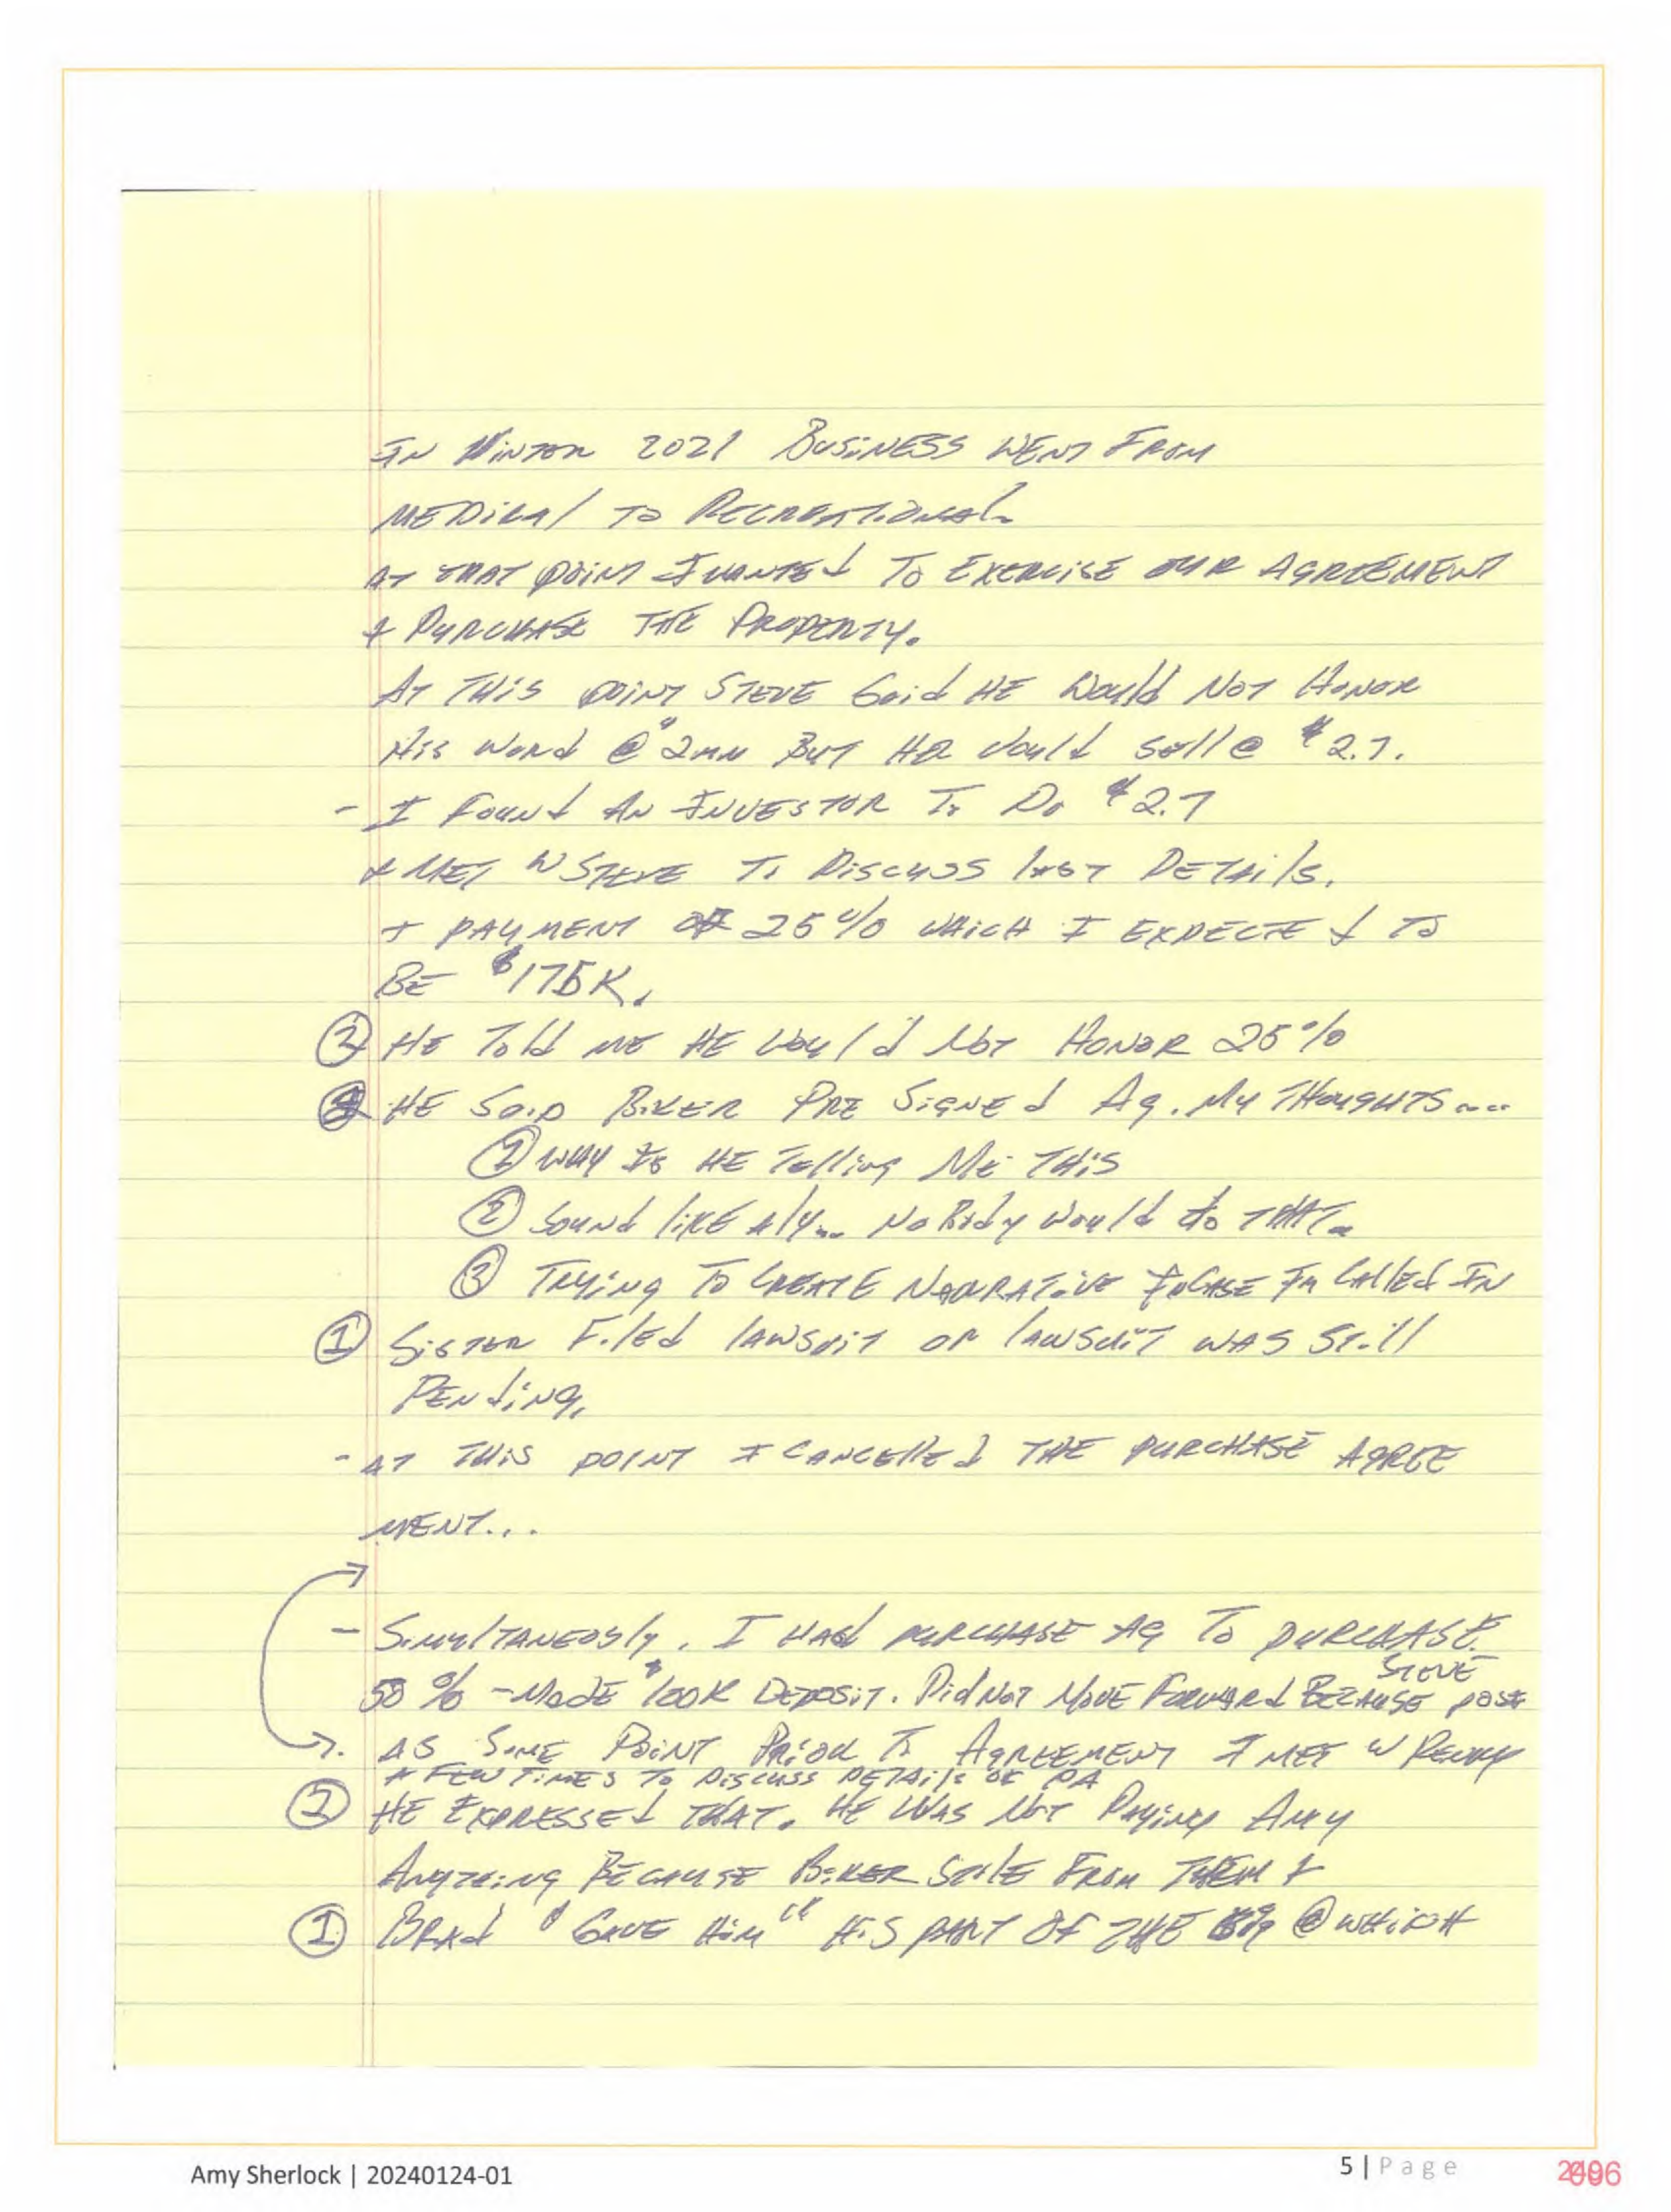 IN WINTER 2021 BUSINESS WENT FROM
MEDICAL TO RECREATIONAL
AT THAT POINT I WANTED TO EXERCISE OUR AGREEMENT
+ PURCHASE THE PROPERTY.
AT THIS POINT STEVE Said HE Would NOT HONOR
His WORD @ $2MM BUT HE Would sell @ $2.7.
- I FOUND AN INVESTOR To Do $2.7
+ MET W STEVE To DISCUSS last DETAILS.
+ PAYMENT OF 25% WHICH I EXPECTED TO
BE $175K.
② HE Told ME HE Would NOT HONOR 25%
HE SAID BIKER PRE SIGNED AG. My THOUGHTS....
① WHY IS HE Telling ME THIS
② SOUND LIKE A LY... NoBody Would do THAT.
③ TRYING TO CREATE NARRATIVE INCASE I'm CAlled IN
① SISTER FILED LAWSUIT OR LAWSUIT WAS Still
PENDING,
- AT THIS POINT I CANCELLED THE PURCHASE AGREE
MENT...
- SIMULTANEOSLY. I HAD PURCHASE AG TO PURCHASE
50% - MADE $100K DEPOSIT. DID NOT MOVE FORWARD BECAUSE STEVE
AS SOME POINT PRIOR To AGREEMENT I MET W
A FEW TIMES TO DISCUSS DETAILS OF PA
② HE EXPRESSED THAT. HE WAS NOT PAYING AMY
ANYTHING BECAUSE BIKER STOLE FROM THEM +
① BRAD "GAVE HIM" HIS PART OF THE @ WHICH
Amy Sherlock | 20240124-01
5 | Page